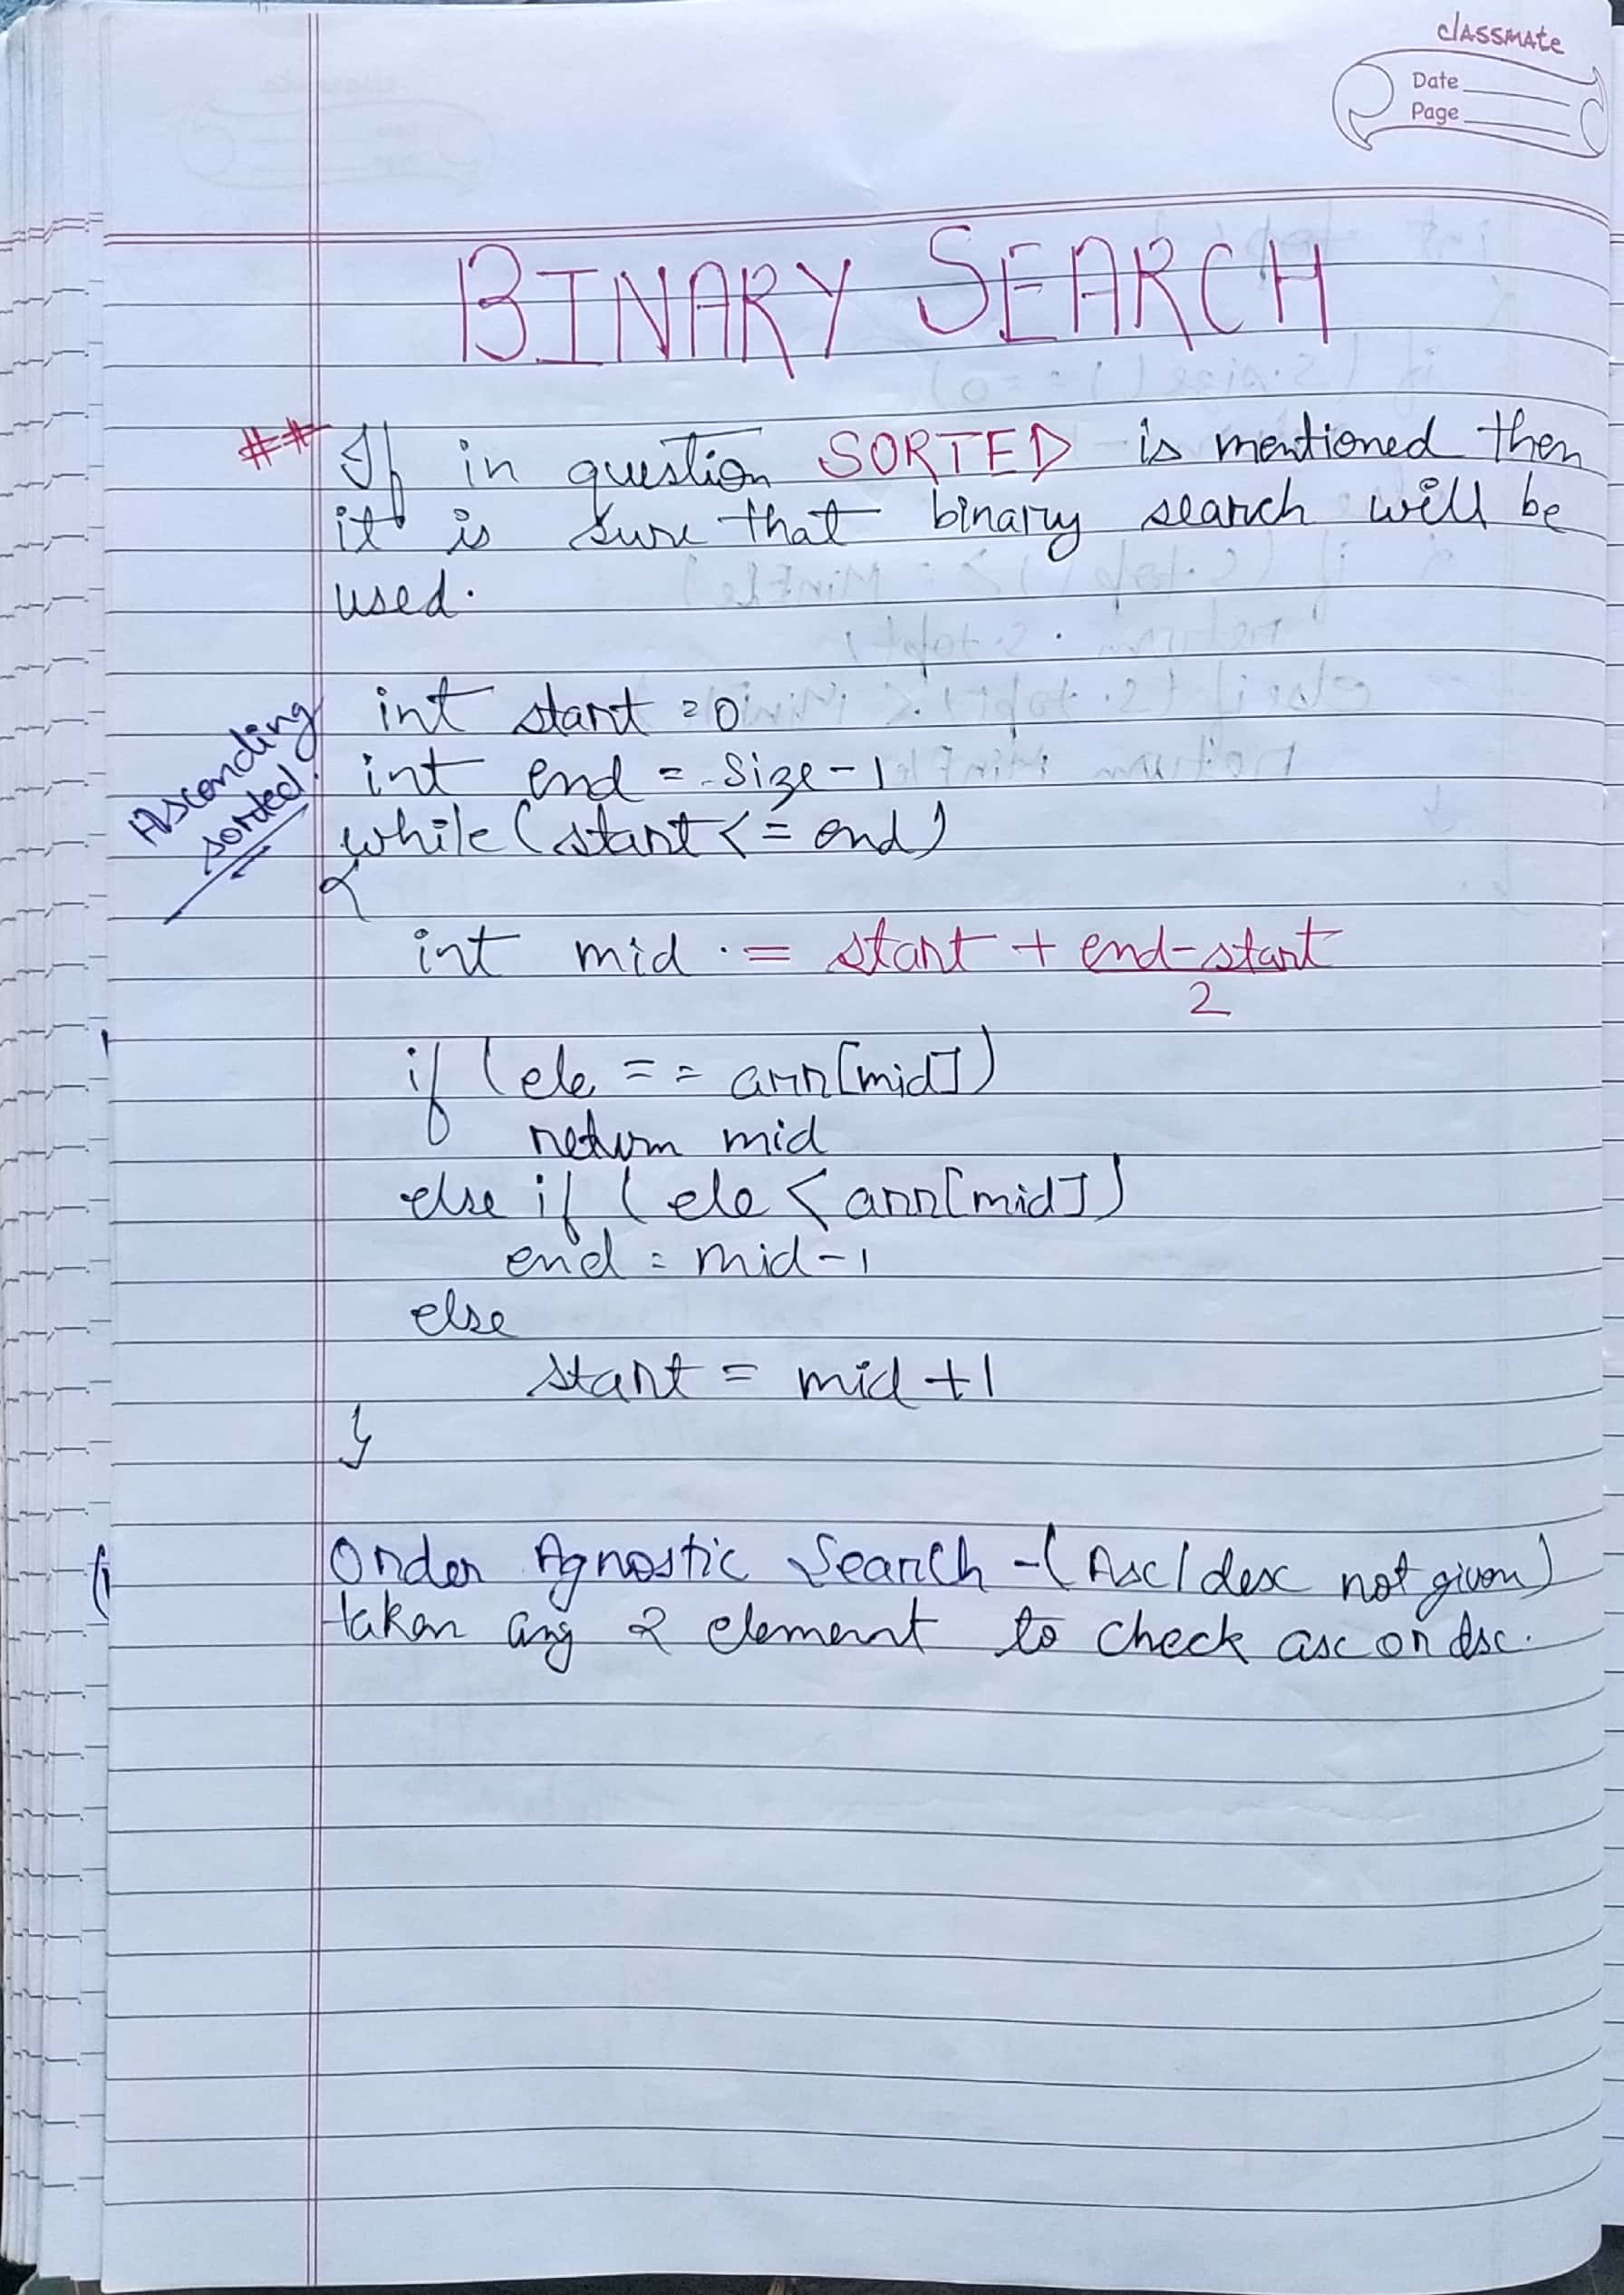 classmate
Date
Page
BINARY SEARCH
## If in question SORTED is mentioned then
it is sure that binary search will be
used.
Ascending
sorted
int start = 0
int end = size - 1
while (start <= end)
{
int mid = start + end-start
2
if (ele == arr[mid])
return mid
else if (ele < arr[mid])
end = mid - 1
else
start = mid + 1
}
Order Agnostic Search - (Asc/desc not given)
taken any 2 element to check asc or dsc.